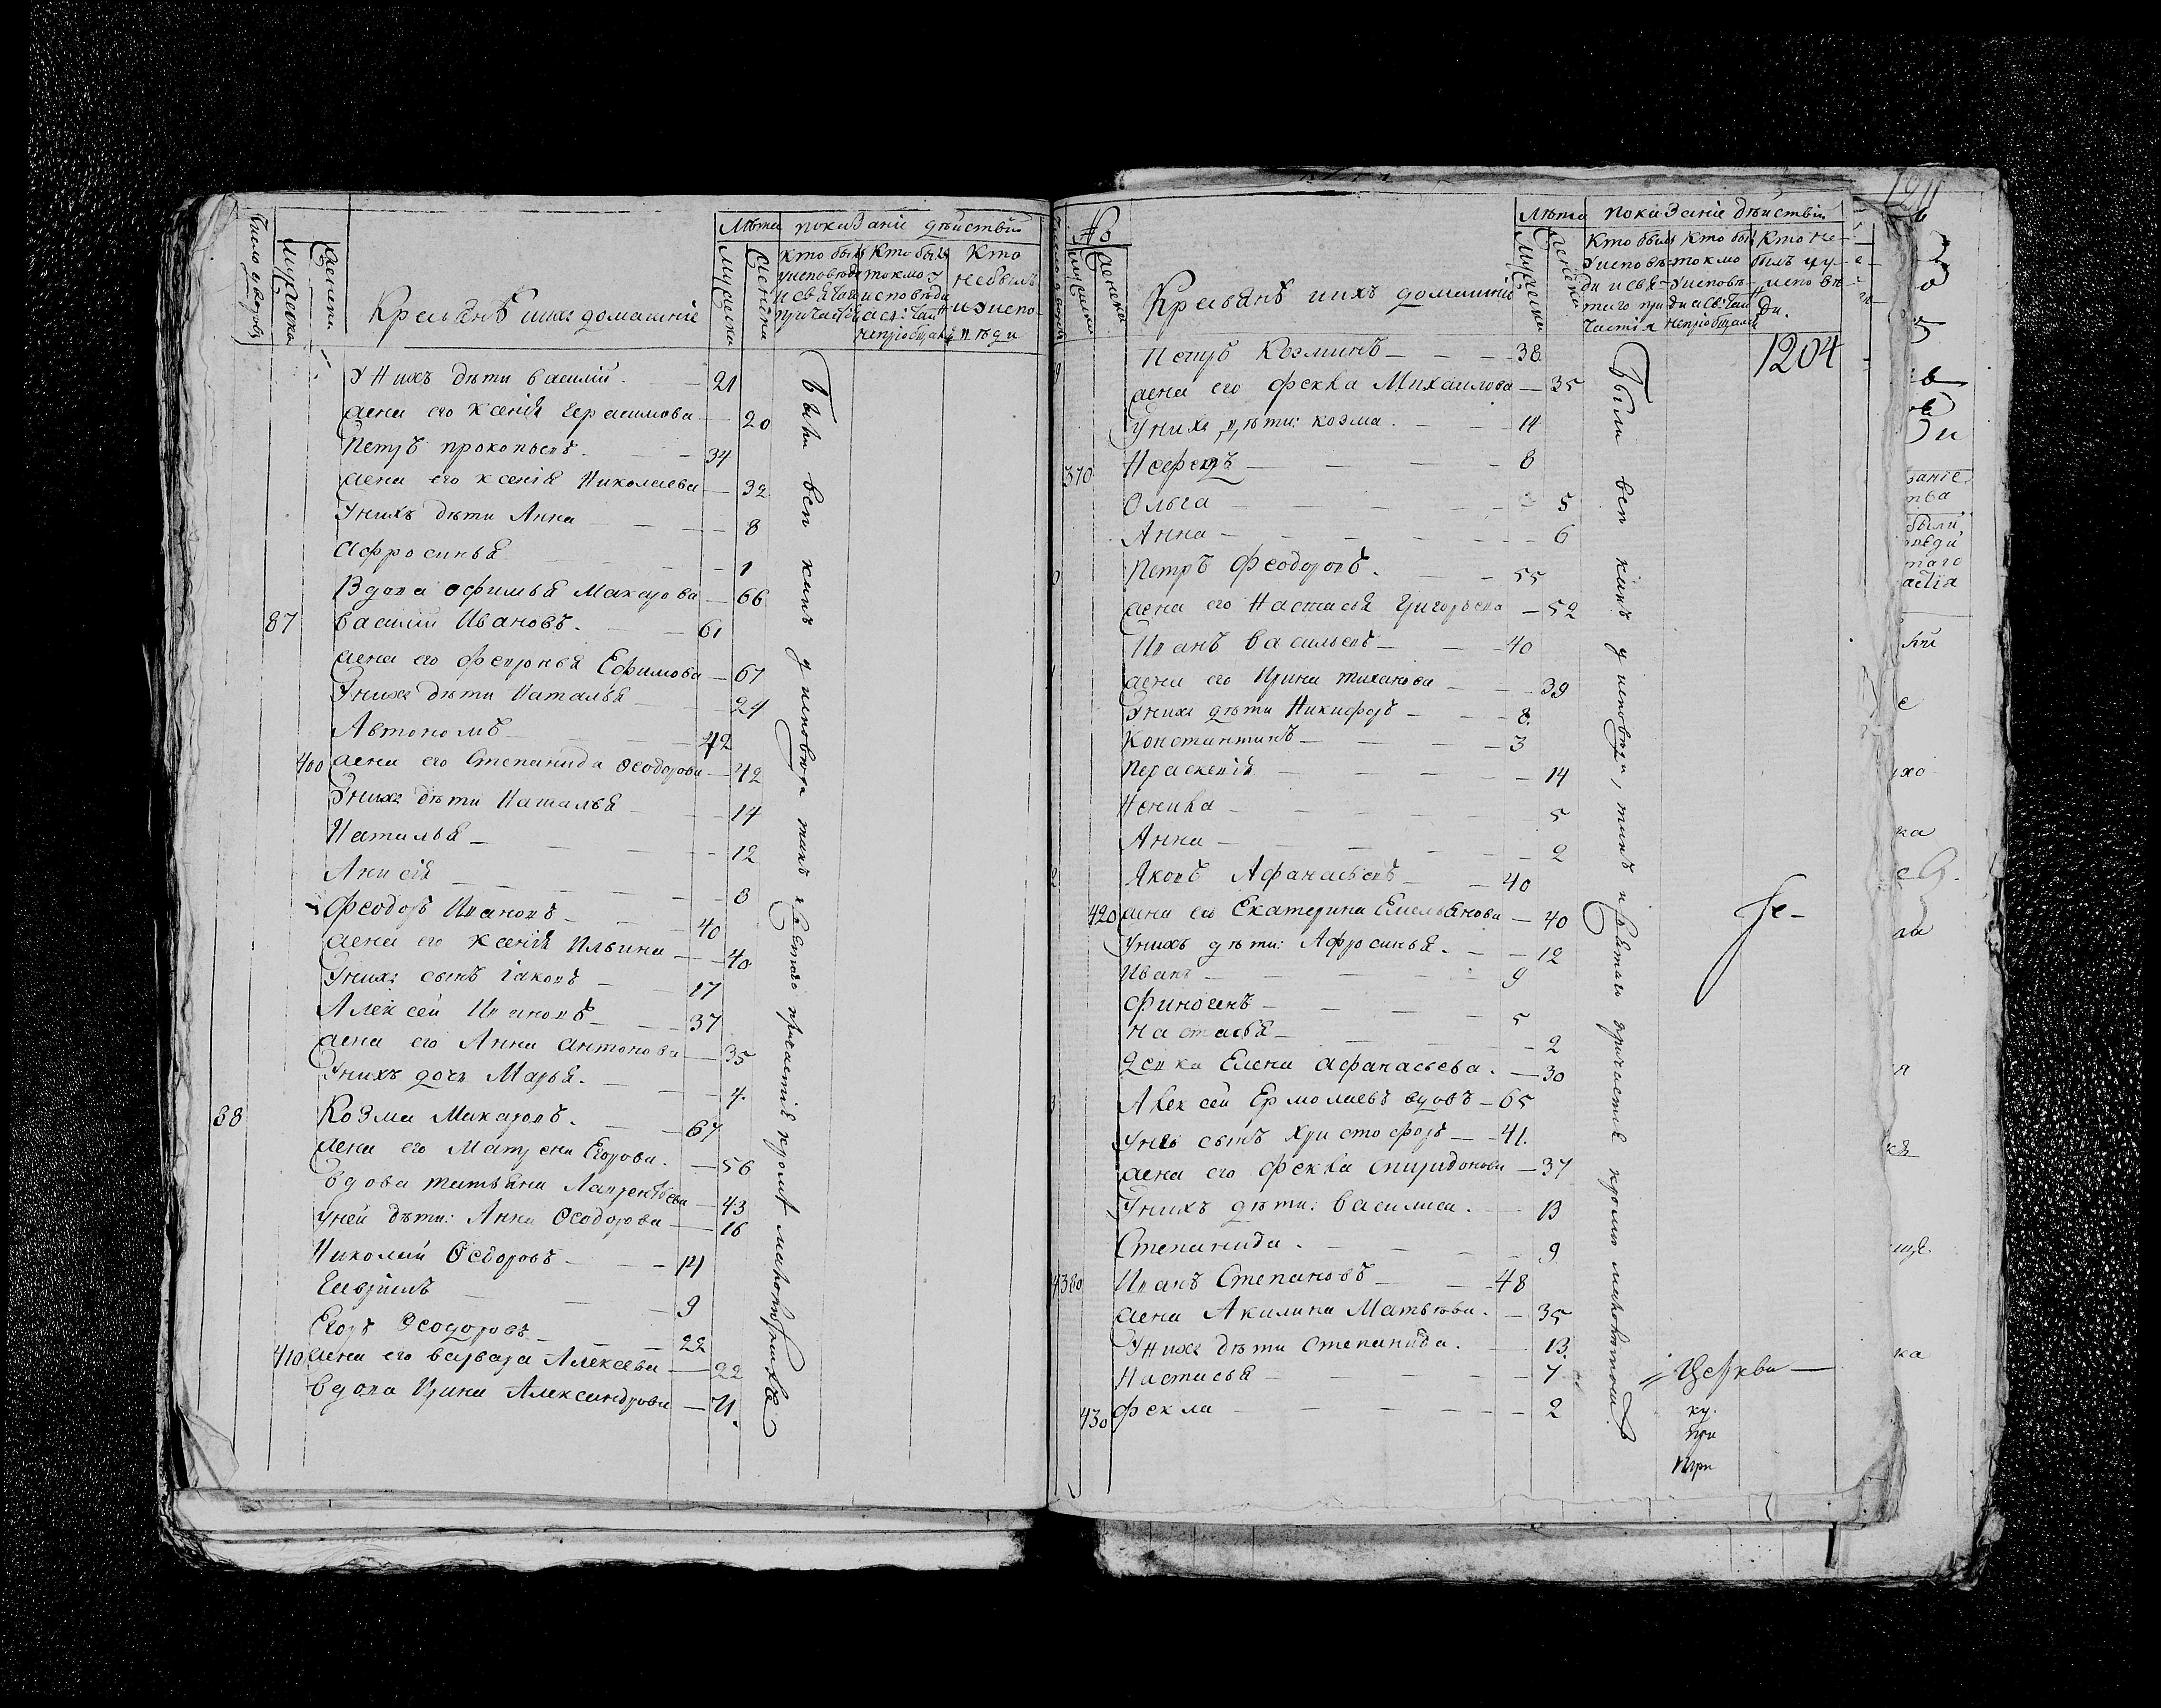 Число дворовъ
Мужеска
Женска
Крестьянѣ и ихъ домашніе
Лѣта показаніе дѣйствій
Мужеска
Женска
Кто былъ у исповѣди и святаго причастія
Кто былъ токмо у исповѣди а с: таинъ непріобщался
Кто небылъ и у исповѣди
У нихъ дѣти Василій. — 21
жена его Ксенія Герасимова — 20
Петръ Прокопьевъ. — 34
жена его Ксенія Николаева — 32
У нихъ дѣти Анна — 8
Афросинья — 1
Вдова Офимья Макарова — 66
87 Василій Ивановъ. — 61
жена его Февронья Ефимова — 67
У нихъ дѣти Наталья — 24
Автономъ — 42
400 жена его Степанида Ѳеодорова — 42
У нихъ дѣти Наталья — 14
Наталья — 12
Анисія — 8
Феодоръ Ивановъ — 40
жена его Ксенія Ильина — 40
У нихъ сынъ Іаковъ — 17
Алексей Ивановъ — 37
жена его Анна Антонова — 35
У нихъ дочь Марья. — 4.
88 Козма Макаровъ. — 67
жена его Матрена Егорова. — 56
Вдова Татьяна Лаврентьева — 43
У ней дѣти: Анна Ѳеодорова — 16
Николай Ѳедоровъ — 14
Гавріилъ — 9
Егоръ Ѳеодоровъ — 22
410 жена его Варвара Алексеева — 22
Вдова Ирина Александрова — 71.
Были все какъ у исповѣди такъ и святаго причастія кроме малолѣтныхъ
Мужеска
Женска
Крестьянѣ и ихъ домашніе
Лѣта показаніе дѣйствій
Мужеска
Женска
Кто былъ у исповѣди и святаго причастія
Кто былъ токмо у исповѣди а св: таинъ непріобщался
Кто небылъ и у исповѣди.
1204
Петръ Козминъ — 38
жена его Фекла Михаилова — 35
У нихъ дѣти: Козма. — 14
370 Нефедъ — 8
Ольга — 5
Анна — 6
Петръ Феодоровъ. — 55
жена его Настасья Григорьева — 52
Иванъ Васильевъ — 40
жена его Ирина Тиханова — 39
У нихъ дѣти Никифоръ — 8.
Константинъ — 3
Параскевія — 14
Ненила — 5
Анна — 2
Яковъ Афанасьевъ — 40
420 жена его Екатерина Емельянова — 40
У нихъ дѣти: Афросинья. — 12
Иванъ — 9
Финогенъ — 5
Настасья — 2
Девка Елена Афанасьева. — 30
Алексей Ермолаевъ вдовъ — 65
У него сынъ Христофоръ — 41.
жена его Фекла Спиридонова — 37
У нихъ дѣти: Василиса. — 13
Степанида. — 9
380 Иванъ Степановъ — 48
жена Акилина Матвѣева. — 35
У нихъ дѣти Степанида. — 13.
Настасья — 7
430 Фекла — 2
Были все какъ у исповѣди, такъ и святаго причастія кромѣ малолѣтныхъ
Церква —
ку.
при
при